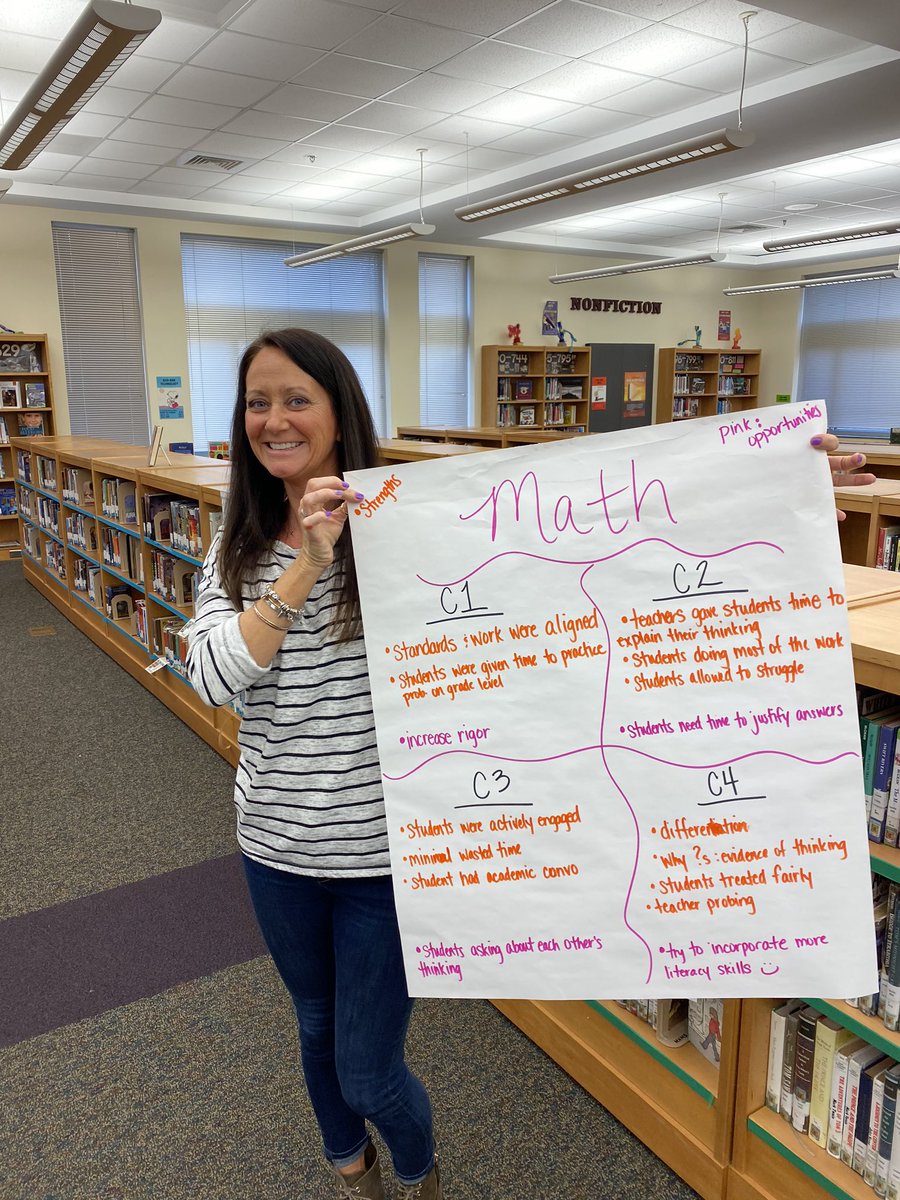 NONFICTION
• Strengths
Pink: opportunities
Math
C1
• Standards & Work were aligned
• Students were given time to practice
prob. on grade level
• increase rigor
C2
• teachers gave students time to
explain their thinking
• Students doing most of the work
• Students allowed to struggle
• Students need time to justify answers
C3
• Students were actively engaged
• minimal wasted time
• Student had academic convo
• Students asking about each other's
thinking
C4
• differentiation
• Why ?s : evidence of thinking
• Students treated fairly
• teacher probing
• try to incorporate more
literacy skills